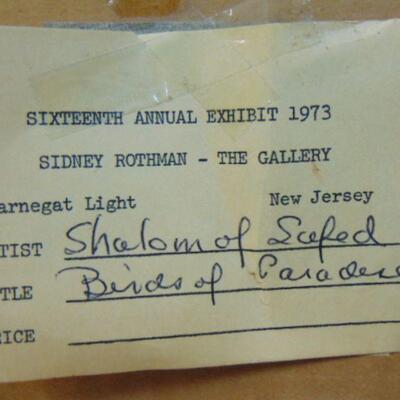 SIXTEENTH ANNUAL EXHIBIT 1973
SIDNEY ROTHMAN - THE GALLERY
arnegat Light New Jersey
TIST Shalom of Safed
TLE Birds of Paradise
RICE